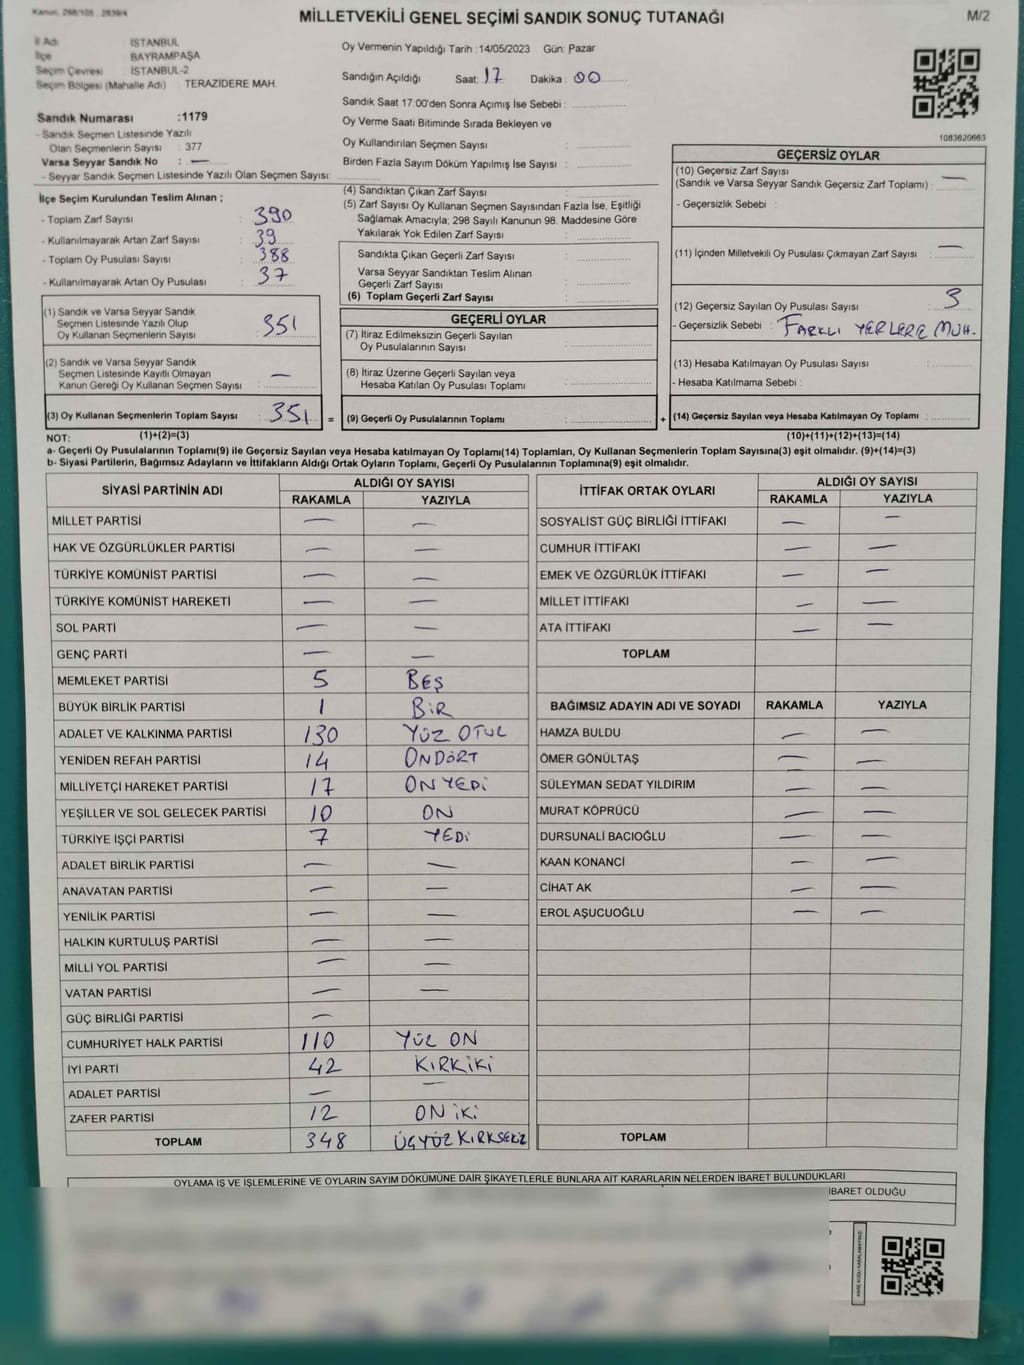 MİLLETVEKİLİ GENEL SEÇİMİ SANDIK SONUÇ TUTANAĞI
M/2
İl Adı : İSTANBUL
İlçe : BAYRAMPAŞA
Seçim Çevresi : İSTANBUL-2
Seçim Bölgesi (Mahalle Adı) : TERAZİDERE MAH.
Sandık Numarası :1179
- Sandık Seçmen Listesinde Yazılı
Olan Seçmenlerin Sayısı : 377
Varsa Seyyar Sandık No : —
- Seyyar Sandık Seçmen Listesinde Yazılı Olan Seçmen Sayısı:
Oy Vermenin Yapıldığı Tarih :14/05/2023 Gün: Pazar
Sandığın Açıldığı Saat: 17 Dakika : 00
Sandık Saat 17:00'den Sonra Açımış İse Sebebi :
Oy Verme Saati Bitiminde Sırada Bekleyen ve
Oy Kullandırılan Seçmen Sayısı :
Birden Fazla Sayım Döküm Yapılmış İse Sayısı :
1083620663
İlçe Seçim Kurulundan Teslim Alınan ;
- Toplam Zarf Sayısı : 390
- Kullanılmayarak Artan Zarf Sayısı : 39
- Toplam Oy Pusulası Sayısı : 388
- Kullanılmayarak Artan Oy Pusulası : 37
(1) Sandık ve Varsa Seyyar Sandık
Seçmen Listesinde Yazılı Olup
Oy Kullanan Seçmenlerin Sayısı : 351
(2) Sandık ve Varsa Seyyar Sandık
Seçmen Listesinde Kayıtlı Olmayan
Kanun Gereği Oy Kullanan Seçmen Sayısı : —
(3) Oy Kullanan Seçmenlerin Toplam Sayısı : 351 =
(1)+(2)=(3)
(4) Sandıktan Çıkan Zarf Sayısı :
(5) Zarf Sayısı Oy Kullanan Seçmen Sayısından Fazla İse, Eşitliği
Sağlamak Amacıyla; 298 Sayılı Kanunun 98. Maddesine Göre
Yakılarak Yok Edilen Zarf Sayısı :
Sandıkta Çıkan Geçerli Zarf Sayısı :
Varsa Seyyar Sandıktan Teslim Alınan
Geçerli Zarf Sayısı :
(6) Toplam Geçerli Zarf Sayısı :
GEÇERLİ OYLAR
(7) İtiraz Edilmeksizin Geçerli Sayılan
Oy Pusulalarının Sayısı :
(8) İtiraz Üzerine Geçerli Sayılan veya
Hesaba Katılan Oy Pusulası Toplamı :
(9) Geçerli Oy Pusulalarının Toplamı : +
GEÇERSİZ OYLAR
(10) Geçersiz Zarf Sayısı
(Sandık ve Varsa Seyyar Sandık Geçersiz Zarf Toplamı) : —
- Geçersizlik Sebebi :
(11) İçinden Milletvekili Oy Pusulası Çıkmayan Zarf Sayısı : —
(12) Geçersiz Sayılan Oy Pusulası Sayısı : 3
- Geçersizlik Sebebi : FARKLI YERLERE MÜH.
(13) Hesaba Katılmayan Oy Pusulası Sayısı :
- Hesaba Katılmama Sebebi :
(14) Geçersiz Sayılan veya Hesaba Katılmayan Oy Toplamı :
(10)+(11)+(12)+(13)=(14)
NOT:
a- Geçerli Oy Pusulalarının Toplamı(9) ile Geçersiz Sayılan veya Hesaba katılmayan Oy Toplamı(14) Toplamları, Oy Kullanan Seçmenlerin Toplam Sayısına(3) eşit olmalıdır. (9)+(14)=(3)
b- Siyasi Partilerin, Bağımsız Adayların ve İttifakların Aldığı Ortak Oyların Toplamı, Geçerli Oy Pusulalarının Toplamına(9) eşit olmalıdır.
SİYASİ PARTİNİN ADI ALDIĞI OY SAYISI
RAKAMLA YAZIYLA
MİLLET PARTİSİ — —
HAK VE ÖZGÜRLÜKLER PARTİSİ — —
TÜRKİYE KOMÜNİST PARTİSİ — —
TÜRKİYE KOMÜNİST HAREKETİ — —
SOL PARTİ — —
GENÇ PARTİ — —
MEMLEKET PARTİSİ 5 BEŞ
BÜYÜK BİRLİK PARTİSİ 1 BİR
ADALET VE KALKINMA PARTİSİ 130 YÜZ OTUZ
YENİDEN REFAH PARTİSİ 14 ONDÖRT
MİLLİYETÇİ HAREKET PARTİSİ 17 ONYEDİ
YEŞİLLER VE SOL GELECEK PARTİSİ 10 ON
TÜRKİYE İŞÇİ PARTİSİ 7 YEDİ
ADALET BİRLİK PARTİSİ — —
ANAVATAN PARTİSİ — —
YENİLİK PARTİSİ — —
HALKIN KURTULUŞ PARTİSİ — —
MİLLİ YOL PARTİSİ — —
VATAN PARTİSİ — —
GÜÇ BİRLİĞİ PARTİSİ —
CUMHURİYET HALK PARTİSİ 110 YÜZ ON
İYİ PARTİ 42 KIRKİKİ
ADALET PARTİSİ — —
ZAFER PARTİSİ 12 ON İKİ
TOPLAM 348 ÜÇYÜZ KIRKSEKİZ
İTTİFAK ORTAK OYLARI ALDIĞI OY SAYISI
RAKAMLA YAZIYLA
SOSYALİST GÜÇ BİRLİĞİ İTTİFAKI — —
CUMHUR İTTİFAKI — —
EMEK VE ÖZGÜRLÜK İTTİFAKI — —
MİLLET İTTİFAKI — —
ATA İTTİFAKI — —
TOPLAM
BAĞIMSIZ ADAYIN ADI VE SOYADI RAKAMLA YAZIYLA
HAMZA BULDU — —
ÖMER GÖNÜLTAŞ — —
SÜLEYMAN SEDAT YILDIRIM — —
MURAT KÖPRÜCÜ — —
DURSUNALİ BACIOĞLU — —
KAAN KONANCİ — —
CİHAT AK — —
EROL AŞUCUOĞLU — —
TOPLAM
OYLAMA İŞ VE İŞLEMLERİNE VE OYLARIN SAYIM DÖKÜMÜNE DAİR ŞİKAYETLERLE BUNLARA AİT KARARLARIN NELERDEN İBARET BULUNDUKLARI
İBARET OLDUĞU